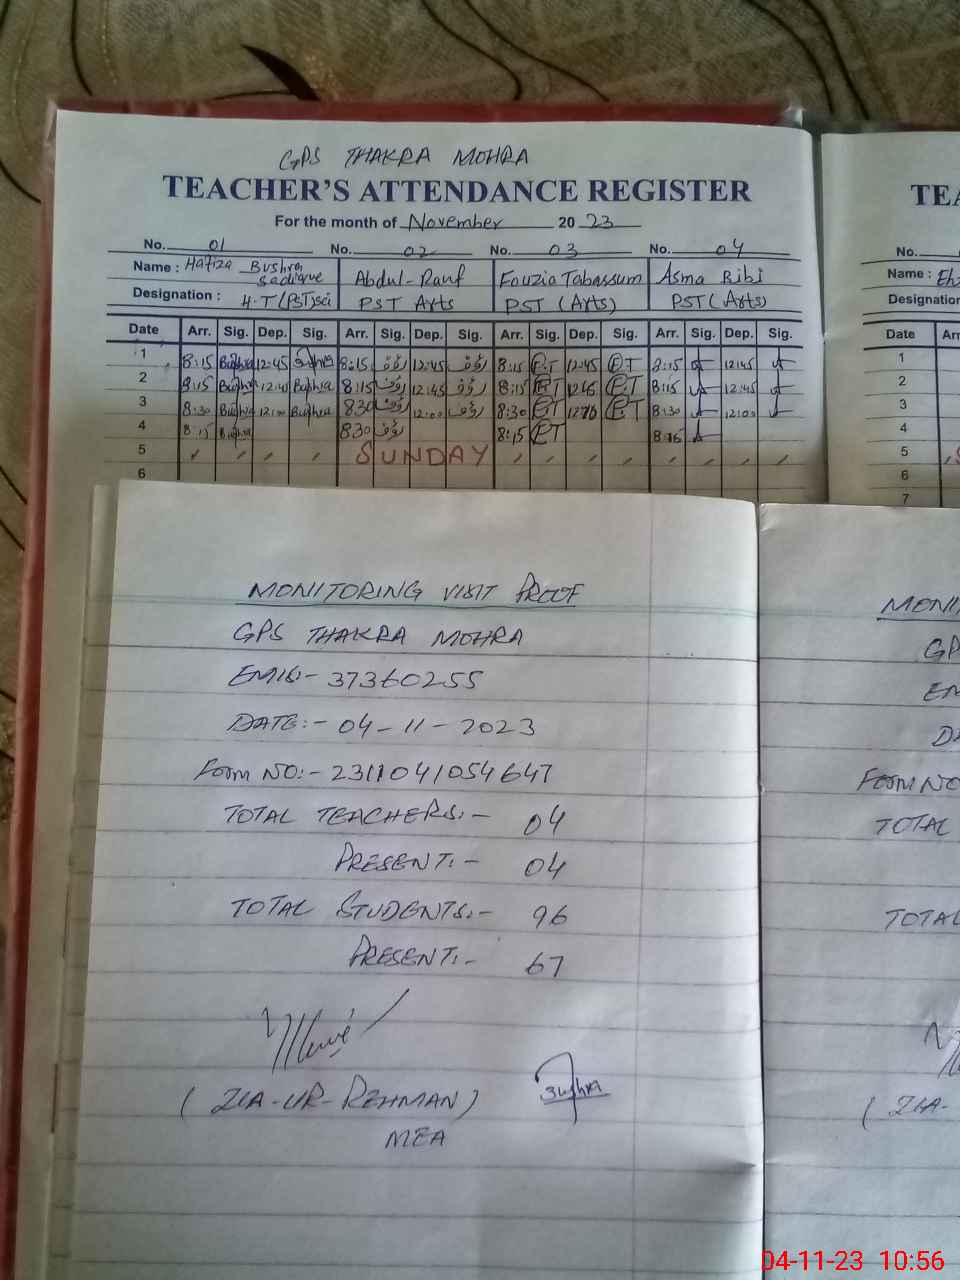 GPS THAKRA MOHRA
TEACHER'S ATTENDANCE REGISTER
For the month of November 2023
No. 01 No. 02 No. 03 No. 04
Name : Hafiza Bushra Sadique Abdul-Rauf Fouzia Tabassum Asma Bibi
Designation : H.T (PST) sci PST Arts PST (Arts) PST (Arts)
Date Arr. Sig. Dep. Sig. Arr. Sig. Dep. Sig. Arr. Sig. Dep. Sig. Arr. Sig. Dep. Sig.
1 8:15 Bushra 12:45 Bushra 8:15 رؤف 12:45 رؤف 8:15 F.T 12:45 F.T 8:15 12:45
2 8:15 Bushra 12:45 Bushra 8:15 رؤف 12:45 رؤف 8:15 F.T F.T 8:15 12:45
3 8:30 Bushra 12:00 Bushra 8:30 رؤف 12:00 رؤف 8:30 F.T F.T 8:30 12:00
4 8:15 Bushra 8:30 رؤف 8:15 F.T
5 SUNDAY
6
TEA
No.
Name : Eh
Designation
Date Arr
1
2
3
4
5 S
7
MONITORING VISIT PROOF
GPS THAKRA MOHRA
EMIS:- 37360255
DATE:- 04-11-2023
Form NO:- 2311041054647
TOTAL TEACHERS:- 04
PRESENT:- 04
TOTAL STUDENTS:- 96
PRESENT:- 67
(ZIA-UR-REHMAN) Bushra
MEA
MONI
GP
EM
DA
Form NO
TOTAL
TOTAL
(ZIA-
04-11-23 10:56